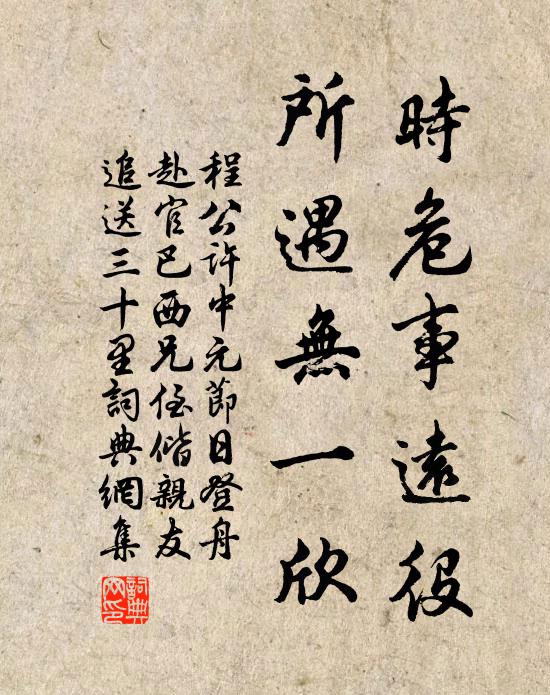 時危事遠役
所遇無一欣
程公許中元節日登舟
赴官巴西兄侄偕親友
追送三十里詞典網集
詞典网印